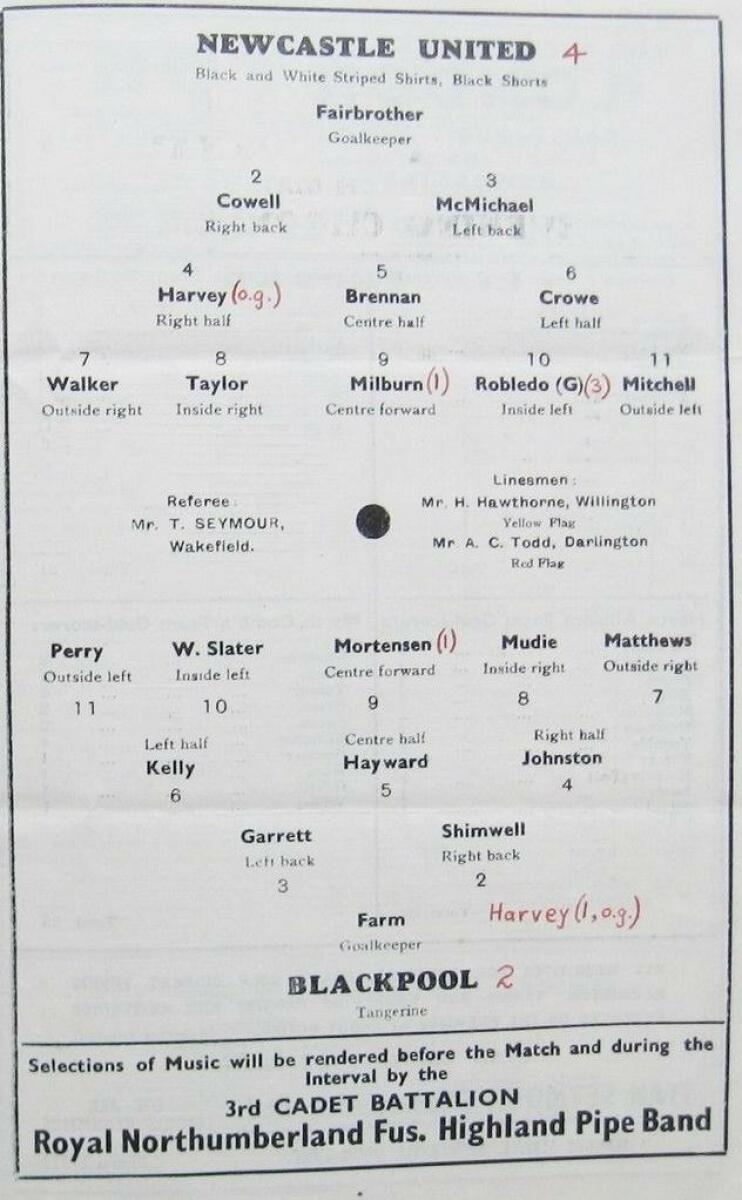 NEWCASTLE UNITED 4
Black and White Striped Shirts, Black Shorts
Fairbrother
Goalkeeper
2 3
Cowell McMichael
Right back Left back
4 5 6
Harvey (o.g.) Brennan Crowe
Right half Centre half Left half
7 8 9 10 11
Walker Taylor Milburn (1) Robledo (G) (3) Mitchell
Outside right Inside right Centre forward Inside left Outside left
Referee:
Mr. T. SEYMOUR,
Wakefield.
Linesmen:
Mr. H. Hawthorne, Willington
Yellow Flag
Mr A. C. Todd, Darlington
Red Flag
Perry W. Slater Mortensen (1) Mudie Matthews
Outside left Inside left Centre forward Inside right Outside right
11 10 9 8 7
Left half Centre half Right half
Kelly Hayward Johnston
6 5 4
Garrett Shimwell
Left back Right back
3 2
Farm Harvey (1, o.g.)
Goalkeeper
BLACKPOOL 2
Tangerine
Selections of Music will be rendered before the Match and during the
Interval by the
3rd CADET BATTALION
Royal Northumberland Fus. Highland Pipe Band